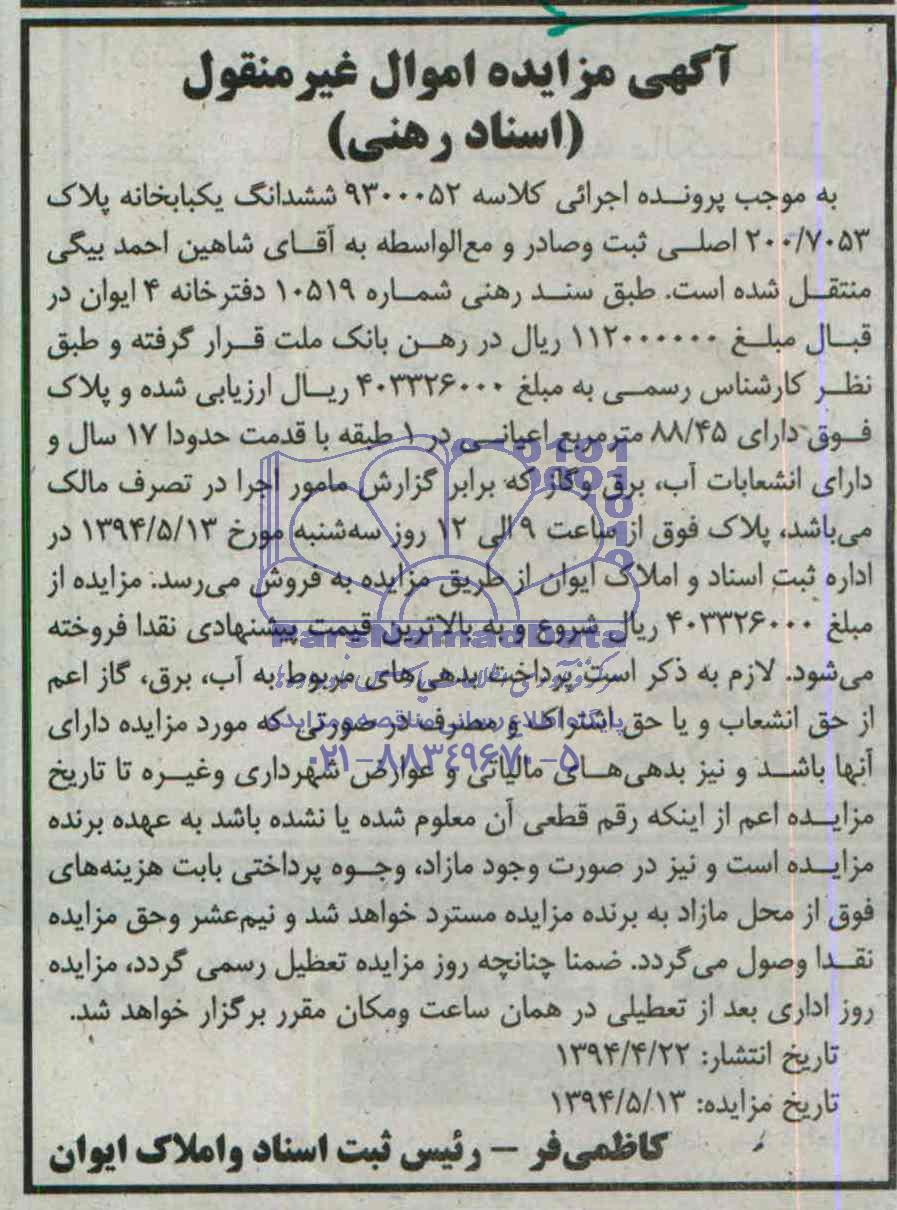 آگهی مزایده اموال غیرمنقول
(اسناد رهنی)
به موجب پرونده اجرائی کلاسه ۹۳۰۰۰۵۲ ششدانگ یکبابخانه پلاک
۲۰۰/۷۰۵۳ اصلی ثبت وصادر و مع‌الواسطه به آقای شاهین احمد بیگی
منتقل شده است. طبق سند رهنی شماره ۱۰۵۱۹ دفترخانه ۴ ایوان در
قبال مبلغ ۱۱۲۰۰۰۰۰۰ ریال در رهن بانک ملت قرار گرفته و طبق
نظر کارشناس رسمی به مبلغ ۴۰۳۳۲۶۰۰۰ ریال ارزیابی شده و پلاک
فوق دارای ۸۸/۴۵ مترمربع اعیانی در ۱ طبقه با قدمت حدودا ۱۷ سال و
دارای انشعابات آب، برق وگاز که برابر گزارش مامور اجرا در تصرف مالک
می‌باشد، پلاک فوق از ساعت ۹ الی ۱۲ روز سه‌شنبه مورخ ۱۳۹۴/۵/۱۳ در
اداره ثبت اسناد و املاک ایوان از طریق مزایده به فروش می‌رسد. مزایده از
مبلغ ۴۰۳۳۲۶۰۰۰ ریال شروع و به بالاترین قیمت پیشنهادی نقدا فروخته
می‌شود. لازم به ذکر است پرداخت بدهی‌های مربوط به آب، برق، گاز اعم
از حق انشعاب و یا حق اشتراک و مصرف در صورتی که مورد مزایده دارای
آنها باشد و نیز بدهی‌های مالیاتی و عوارض شهرداری وغیره تا تاریخ
مزایده اعم از اینکه رقم قطعی آن معلوم شده یا نشده باشد به عهده برنده
مزایده است و نیز در صورت وجود مازاد، وجوه پرداختی بابت هزینه‌های
فوق از محل مازاد به برنده مزایده مسترد خواهد شد و نیم‌عشر وحق مزایده
نقدا وصول می‌گردد. ضمنا چنانچه روز مزایده تعظیل رسمی گردد، مزایده
روز اداری بعد از تعطیلی در همان ساعت ومکان مقرر برگزار خواهد شد.
تاریخ انتشار: ۱۳۹۴/۴/۲۲
تاریخ مزایده: ۱۳۹۴/۵/۱۳
کاظمی‌فر – رئیس ثبت اسناد واملاک ایوان
ParsNamadData
پایگاه اطلاع رسانی مناقصه و مزایده
۰۲۱-۸۸۳۴۹۶۷۰-۵